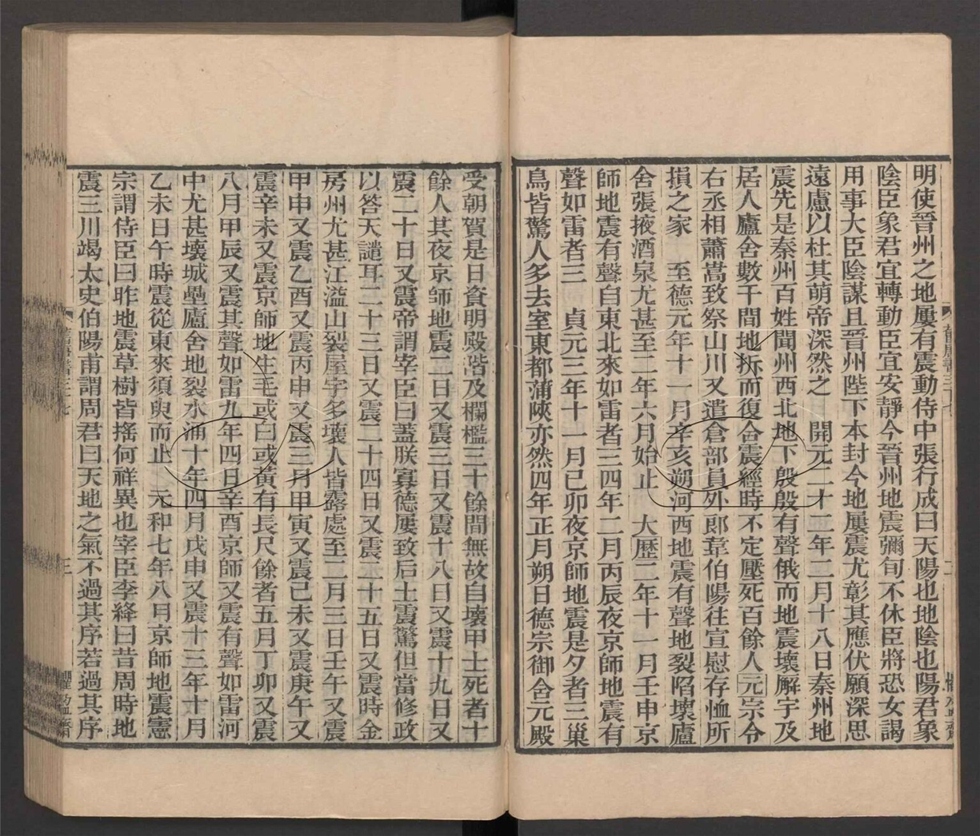 明使晉州之地屢有震動侍中張行成曰天陽也地陰也陽君象
陰臣象君宜轉動臣宜安靜今晉州地震彌旬不休臣將恐女謁
用事大臣陰謀且晉州陛下本封今地屢震尤彰其應伏願深思
遠慮以杜其萌帝深然之 開元二才二年二月十八日秦州地
震先是秦州百姓聞州西北地下殷殷有聲俄而地震壞廨宇及
居人廬舍數千間地拆而復合震經時不定壓死百餘人元宗令
右丞相蕭嵩致祭山川又遣倉部員外郎韋伯陽往宣慰存恤所
損之家 至德元年十一月辛亥朔河西地震有聲地裂陷壞廬
舍張掖酒泉尤甚至二年六月始止 大歷二年十一月壬申京
師地震有聲自東北來如雷者三四年二月丙辰夜京師地震有
聲如雷者三 貞元三年十一月己卯夜京師地震是夕者三巢
鳥皆驚人多去室東都蒲陝亦然四年正月朔日德宗御含元殿
舊唐書三十七
二
受朝賀是日資明殿階及欄檻三十餘間無故自壞甲士死者十
餘人其夜京師地震二日又震三日又震十八日又震十九日又
震二十日又震帝謂宰臣曰蓋朕寡德屢致后土震驚但當修政
以答天譴耳二十三日又震二十四日又震二十五日又震時金
房州尤甚江溢山裂屋宇多壞人皆露處至二月三日壬午又震
甲申又震乙酉又震丙申又震三月甲寅又震己未又震庚午又
震辛未又震京師地生毛或曰或黃有長尺餘者五月丁卯又震
八月甲辰又震其聲如雷九年四日辛酉京師又震有聲如雷河
中尤甚壞城壘廬舍地裂水涌十年四月戊申又震十三年十月
乙未日午時震從東來須臾而止 元和七年八月京師地震憲
宗謂侍臣曰昨地震草樹皆搖何祥異也宰臣李絳曰昔周時地
震三川竭太史伯陽甫謂周君曰天地之氣不過其序若過其序
舊唐書三十七
三
懼盈齋